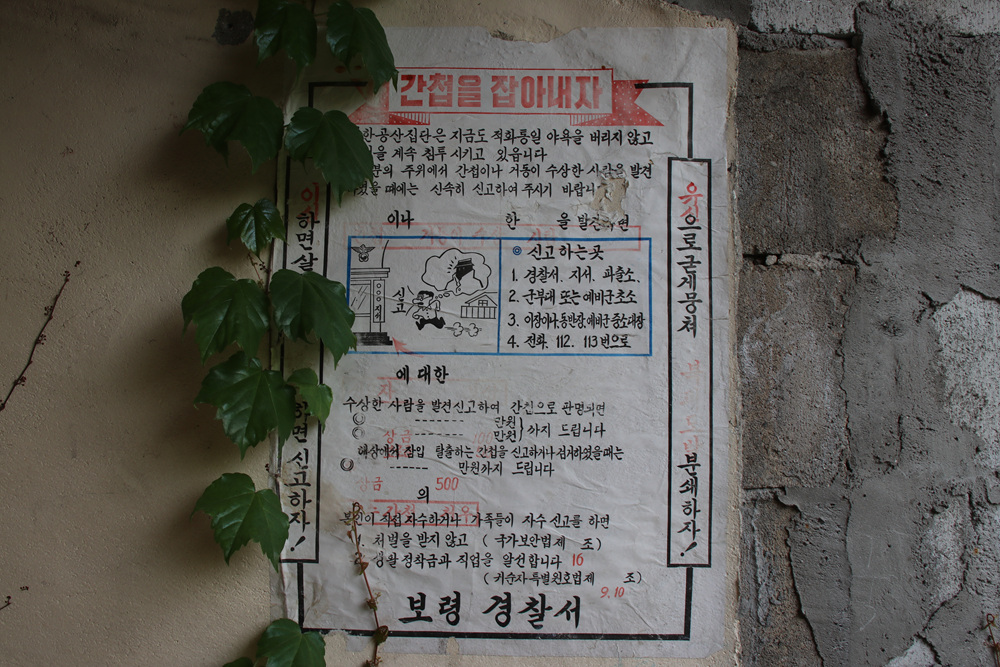 간첩을 잡아내자
한공산집단은 지금도 적화통일 야욕을 버리지 않고
을 계속 침투 시키고 있읍니다
분의 주위에서 간첩이나 거동이 수상한 사람을 발견
을 때에는 신속히 신고하여 주시기 바랍니
이나 한 을 발견 면
신고
◎ 신고하는곳
1. 경찰서. 지서. 파출소.
2. 군부대 또는 예비군초소
3. 이장이나.동반장.예비군 중소대장
4. 전화. 112. 113번으로
에 대한
수상한 사람을 발견신고하여 간첩으로 판명되면
만원
만원 까지 드립니다
상금
해상에서 잠입 탈출하는 간첩을 신고하거나 검거하였을때는
만원까지 드립니다
상금 500
의
본인이 직접 자수하거나 가족들이 자수 신고를 하면
1. 처벌을 받지 않고 ( 국가보안법제 조)
2. 생활 정착금과 직업을 알선합니다 16
(귀순자특별원호법제 조)
9.10
보령 경찰서
이 하면 살
하면 신고하자!
유신으로 굳게 뭉쳐
분쇄하자!